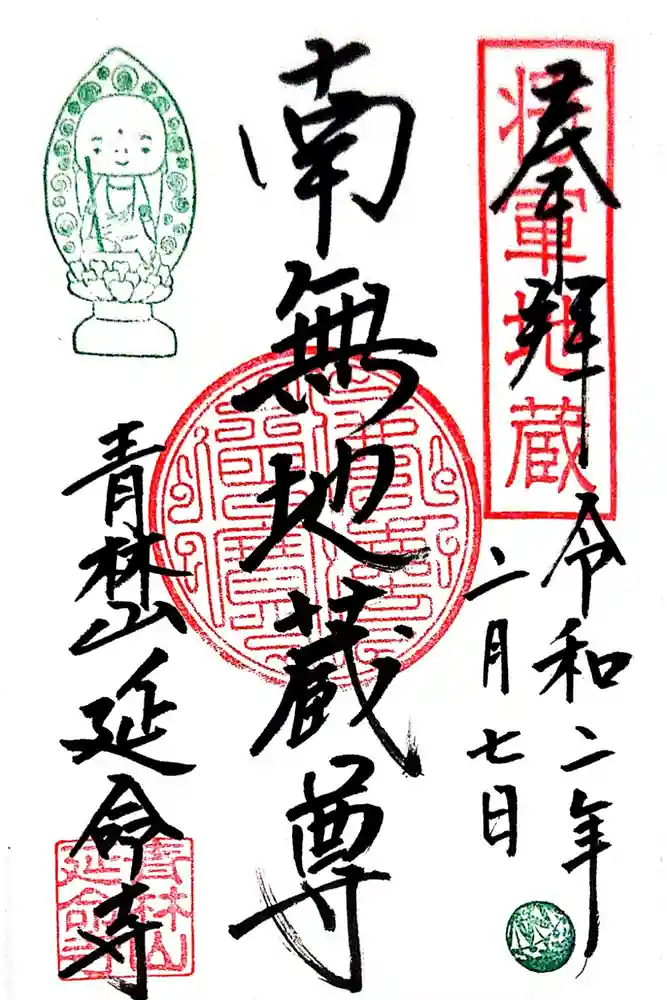 奉拝
将軍地蔵
令和二年
二月七日
南無地蔵尊
佛法僧寳
青林山延命寺
青林山
延命寺